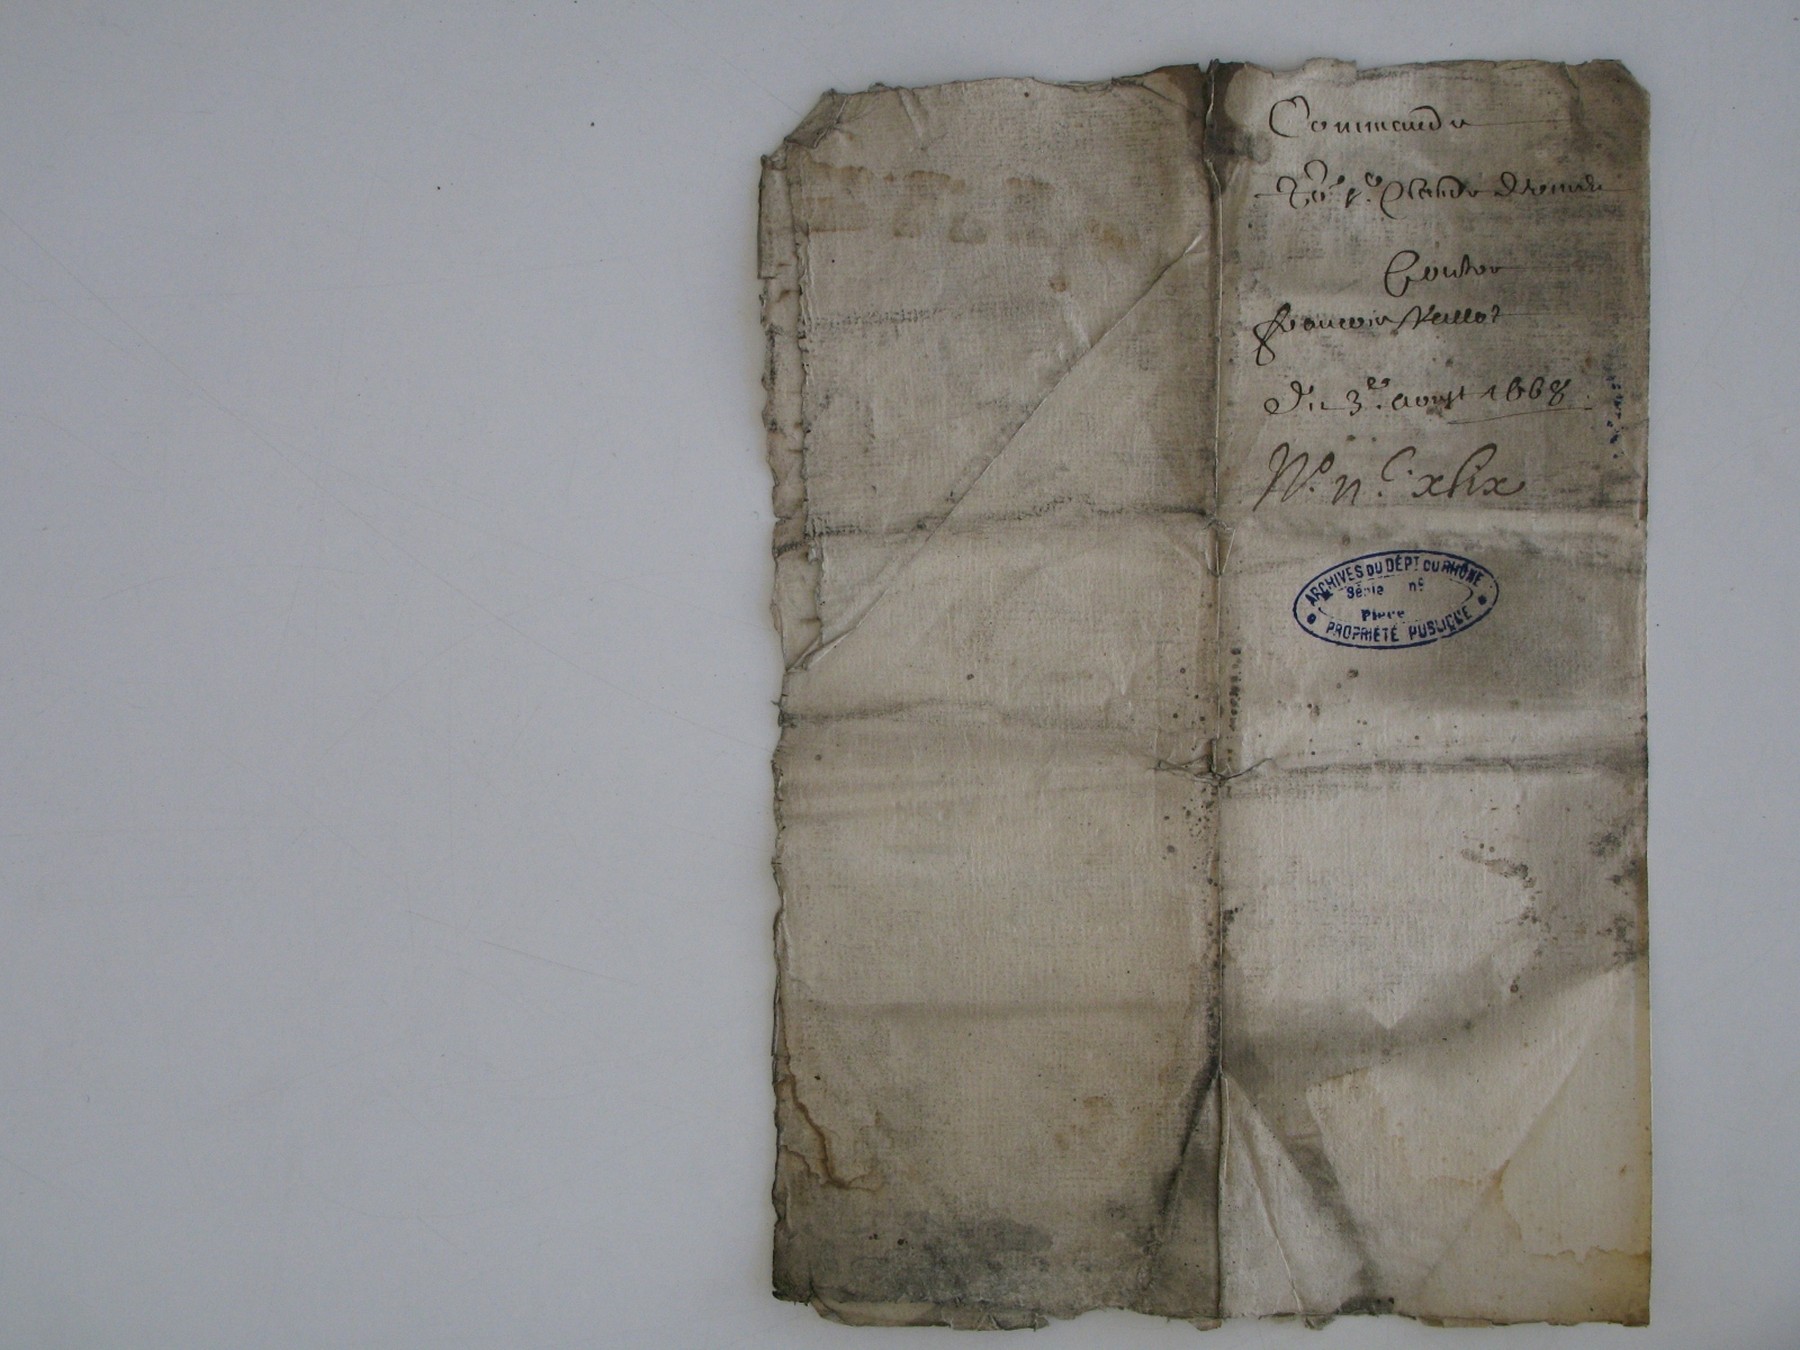 Commande
Claude
Contre
francois
du 3e. aoust 1668.
No. n.C xlix
ARCHIVES DU DÉPT DU RHÔNE
Série no
Pièce
PROPRIÉTÉ PUBLIQUE